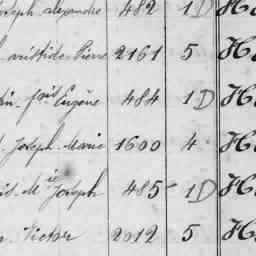 Joseph alexandre 482 1D H
aristide Pierre 2161 5 H
Jn. Eugène 484 1D H
Joseph Marie 1600 4 H
Joseph 485 1D H
Victor 2012 5 H